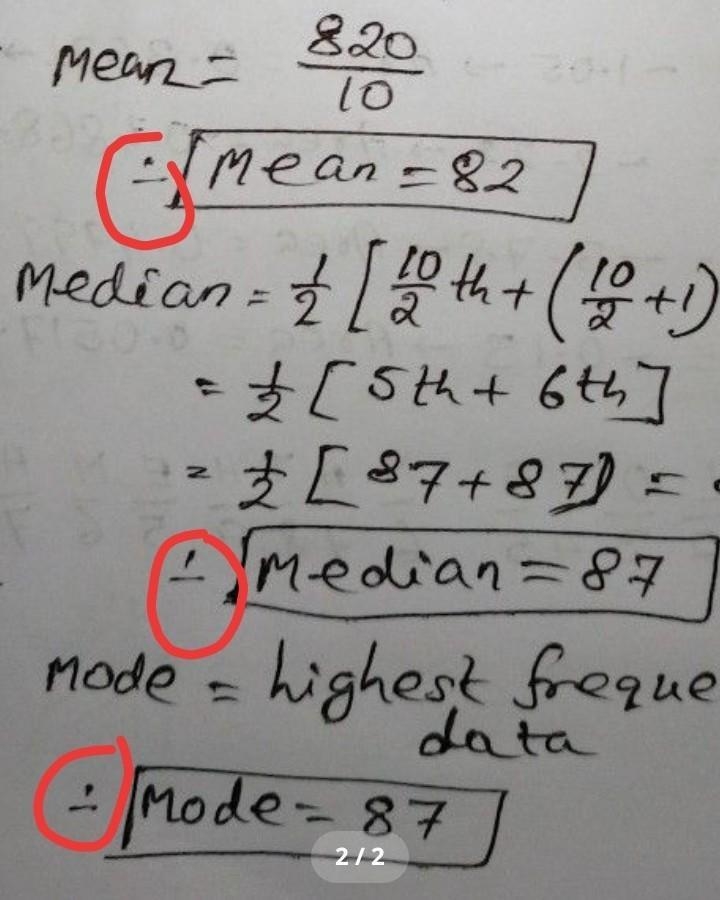 Mean = 820/10
∸ Mean = 82
Median = 1/2 [ 10/2 th + ( 10/2 + 1)
= 1/2 [ 5th + 6th ]
= 1/2 [ 87 + 87) =
∸ Median = 87
Mode = highest freque
data
∸ Mode = 87
2 / 2